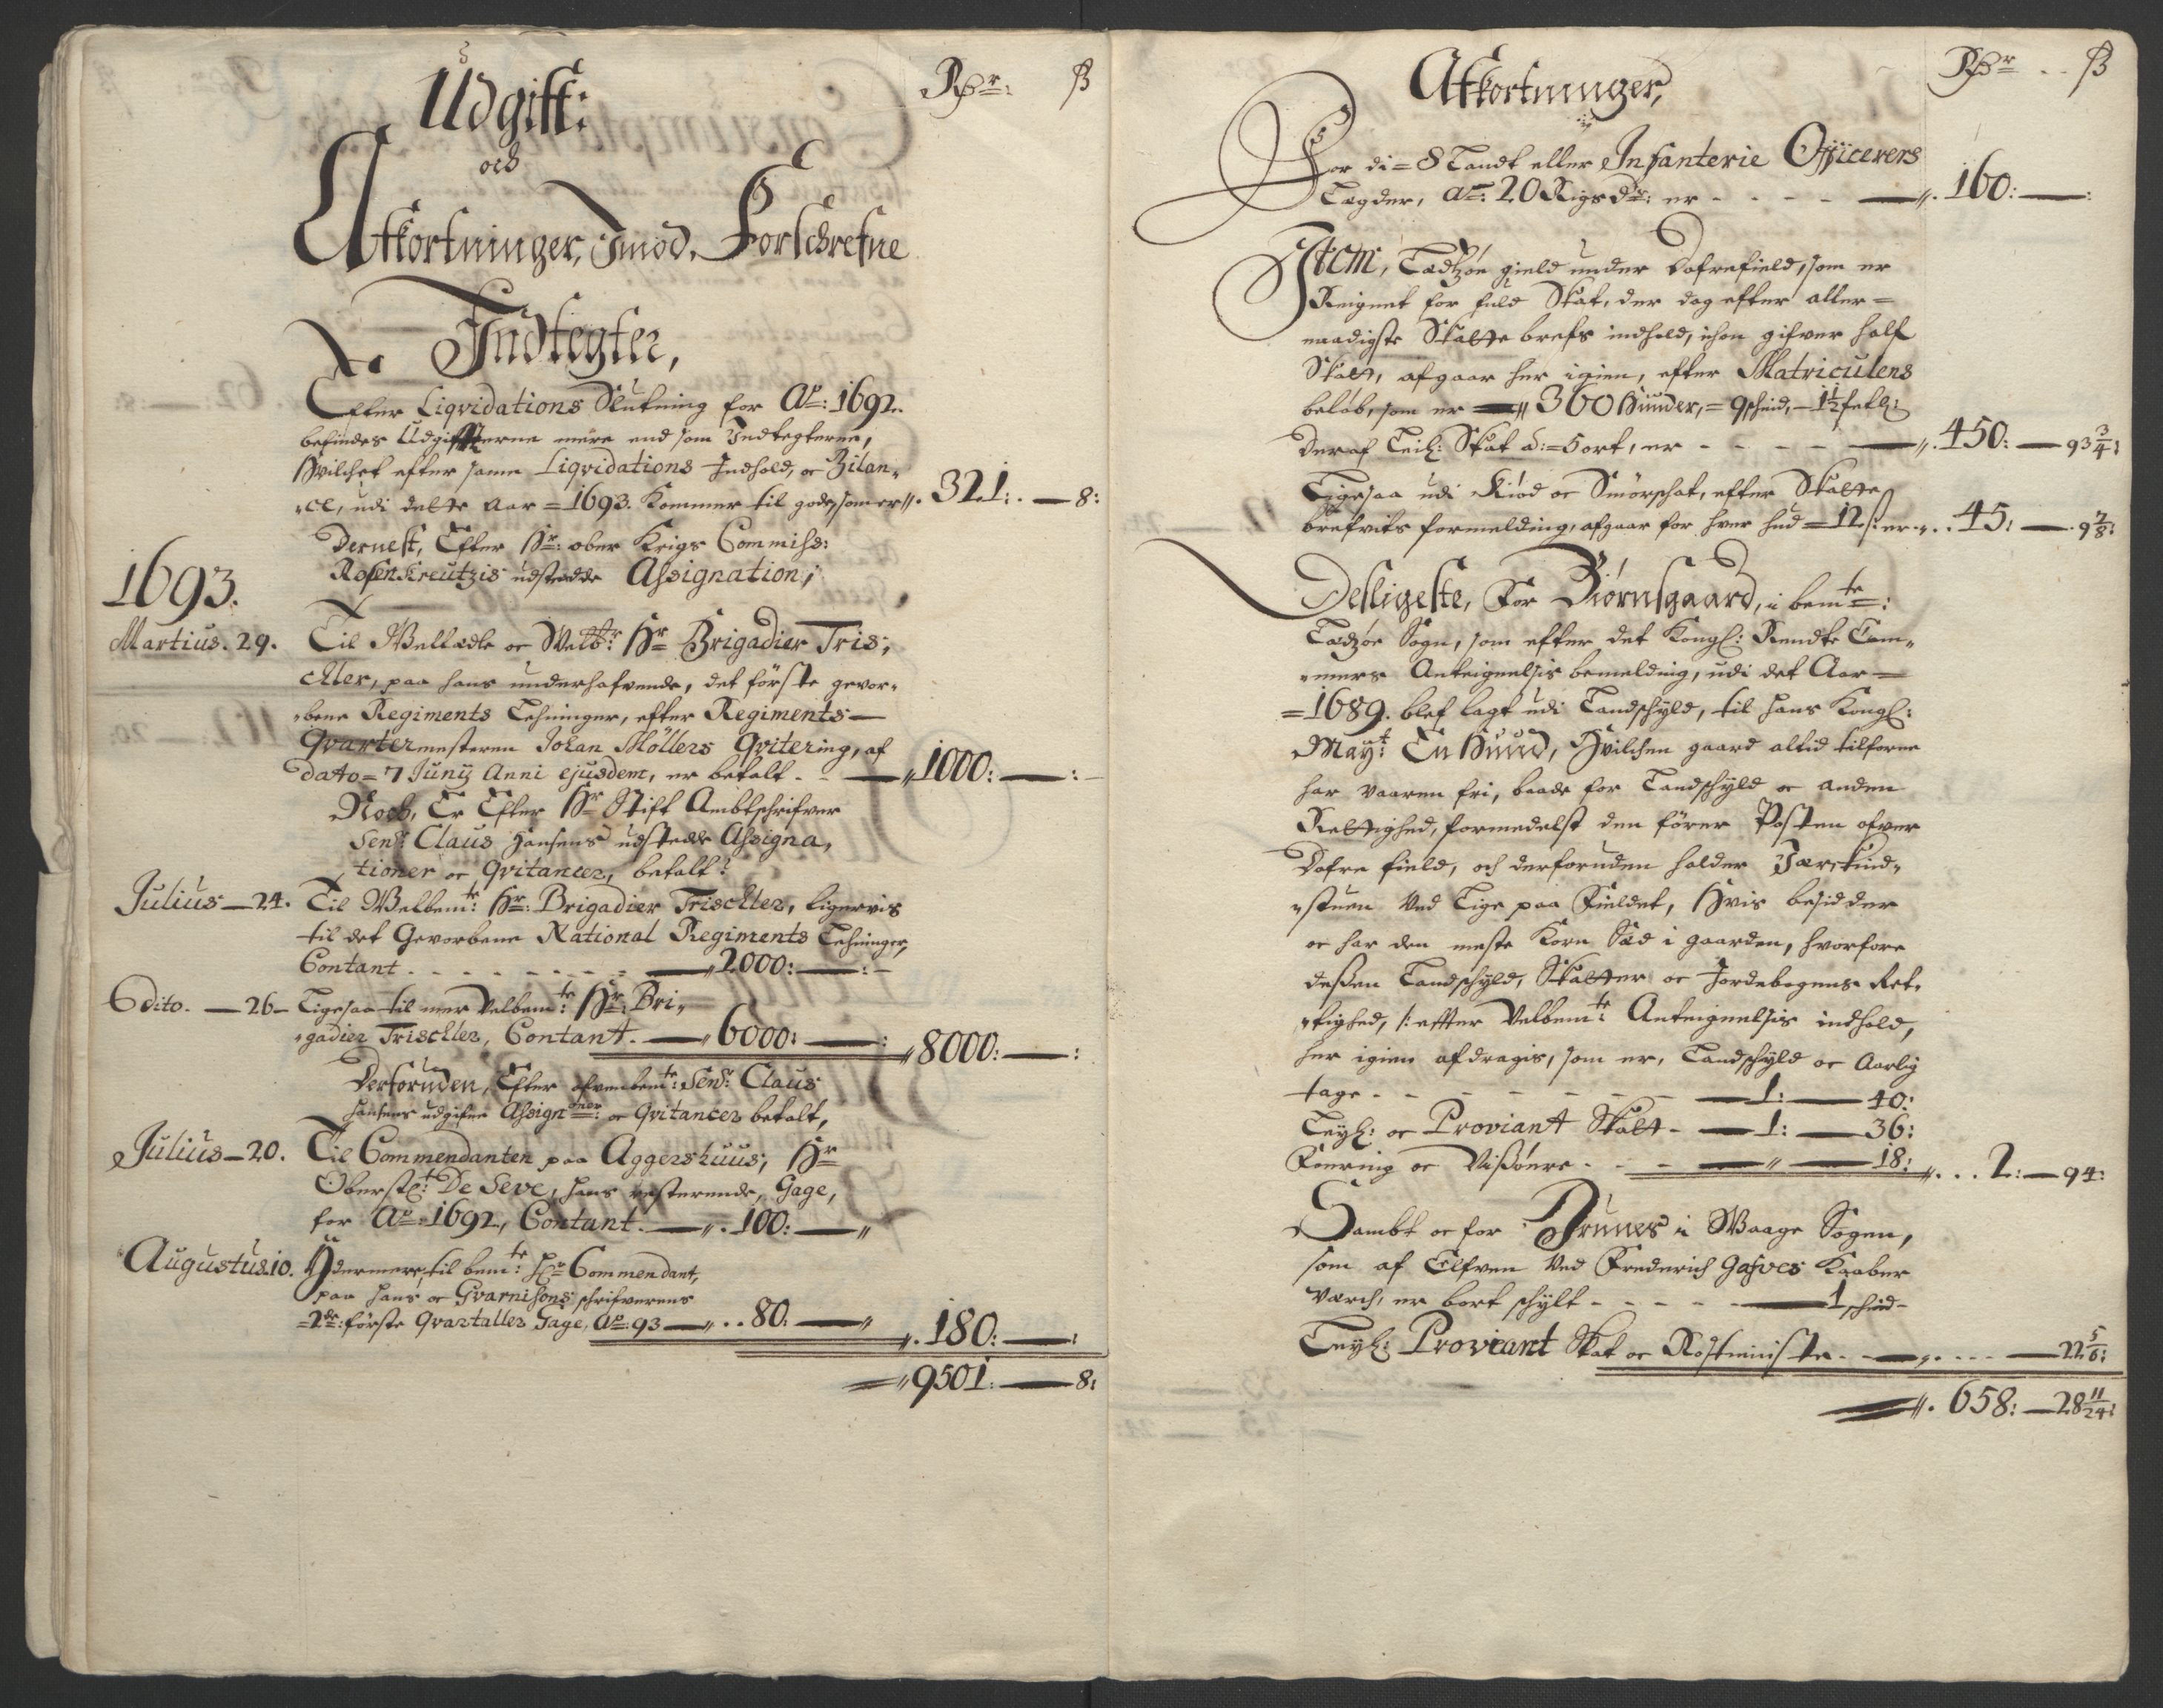 Udgift:
och
Afkortninger, Imod, Forschrefne
Indtegter,
Rdr: ß
Efter Liqvidations Slutning for Ao: 1692.
befindes Udgifterne mere end som Indtegterne,
Hvilchet efter samme Liqvidations Indhold, oc Bilan-
ce, udi dette Aar = 1693. kommer til gode, som er 321: — 8:
Dernest, Efter Hr: ober Krigs Commiss:
Rosenkreutzis udstedde Assignation,
1693.
Martius. 29. Til Velædle oc Velb: Hr Brigadier Tris-
chler, paa hans underhafvende, det første gevor-
bene Regiments Lehninger, efter Regiments
Qvartermesteren Johan Møllers Qvitering, af
dato = 7 Junij Anni ejusdem, er betalt — 1000: — :
Noch, Er Efter Hr Stift Ambtschrifver
Senr Claus Hansens udstedde Assigna-
tioner oc Qvitancer, betalt:
Julius — 24. Til Velbemte: Hr: Brigadier Trischler, ligervis
til det Gevorbene National Regiments Lehninger,
Contant — 2000: — : —
Odito. — 26 — Ligesaa til mer Velbemte: Hr: Bri-
gadier Trischler, Contant. — 6000: — : 8000: — :
Derforuden, Efter ofvenbemte: Senr: Claus
Hansens udgifne Assignationer: oc Qvitancer betalt,
Julius — 20. Til Commendanten paa Aggershuus, Hr
Oberstlt: De Seve, hans resterende, Gage,
for Ao: 1692, Contant. — 100: —
Augustus. 10. Ydermere, til bemte: Hr Commendant,
paa hans oc Gvarnisons schrifverens
= 2de: første Qvartaller Gage, Ao: 93 — 80: — 180: — :
9501: — 8:
Afkortninger,
Rdr — ß
For di = 8 Landt eller Infanterie Officerers
Lægder, a: 20 Rigsdr: er — 160: — :
Item, Ledzøe gield under Dofrefield, som er
Reignet for fuld Skat, der dog efter aller =
naadigste Skatte brefs indhold, ichon gifver half
Skatt, afgaar her igien, efter Matriculens
beløb, som er — 360 Huuder, = 9 schind, — 1 1/2 fetl:
Deraf Leil: Skat a: = 5 ort, er — 450: — 93 3/4:
Ligesaa udi Kiød oc Smørschat, efter Skatte
brefvits formelding, afgaar for hver hud = 12 ß: er 45: — 9 7/8:
Desligeste, For Biørnsgaard, i bemte:
Ledzøe Sogn, som efter det Kongl: Rendte Cam-
mers Anteignelsis bemelding, udi det Aar —
= 1689. blef lagt udi Landschyld, til hans Kongl:
Mayt: En Huud, Hvilchen gaard altid tilforne
har vaaren fri, baade for Landschyld oc anden
Rettighed, formedelst den fører Posten ofver
Dofre field, och derforuden holder
stuen ved Lige paa Fieldet, Hvis besidder
oc har den meste Korn Sæd i gaarden, hvorfore
dessen Landschyld, Skatter oc Jordebogens Ret-
tighed, /: efter Velbemte: Anteignelsis indhold,
her igien afdragis, som er, Landschyld oc Aarlig
tage — 1: — 40:
Leyl: oc Proviant Skatt — 1: — 36:
Foering oc Vissøere — 18: 2: — 94:
Sambt oc for Bruues i Waage Sogen,
som af Elfven ved Frederich Gafves Kaaber
Værch, er bort schylt — 1 schind —
Leyl: Proviant Skat oc Rostieniste — 22 5/6:
658: — 28 11/24: